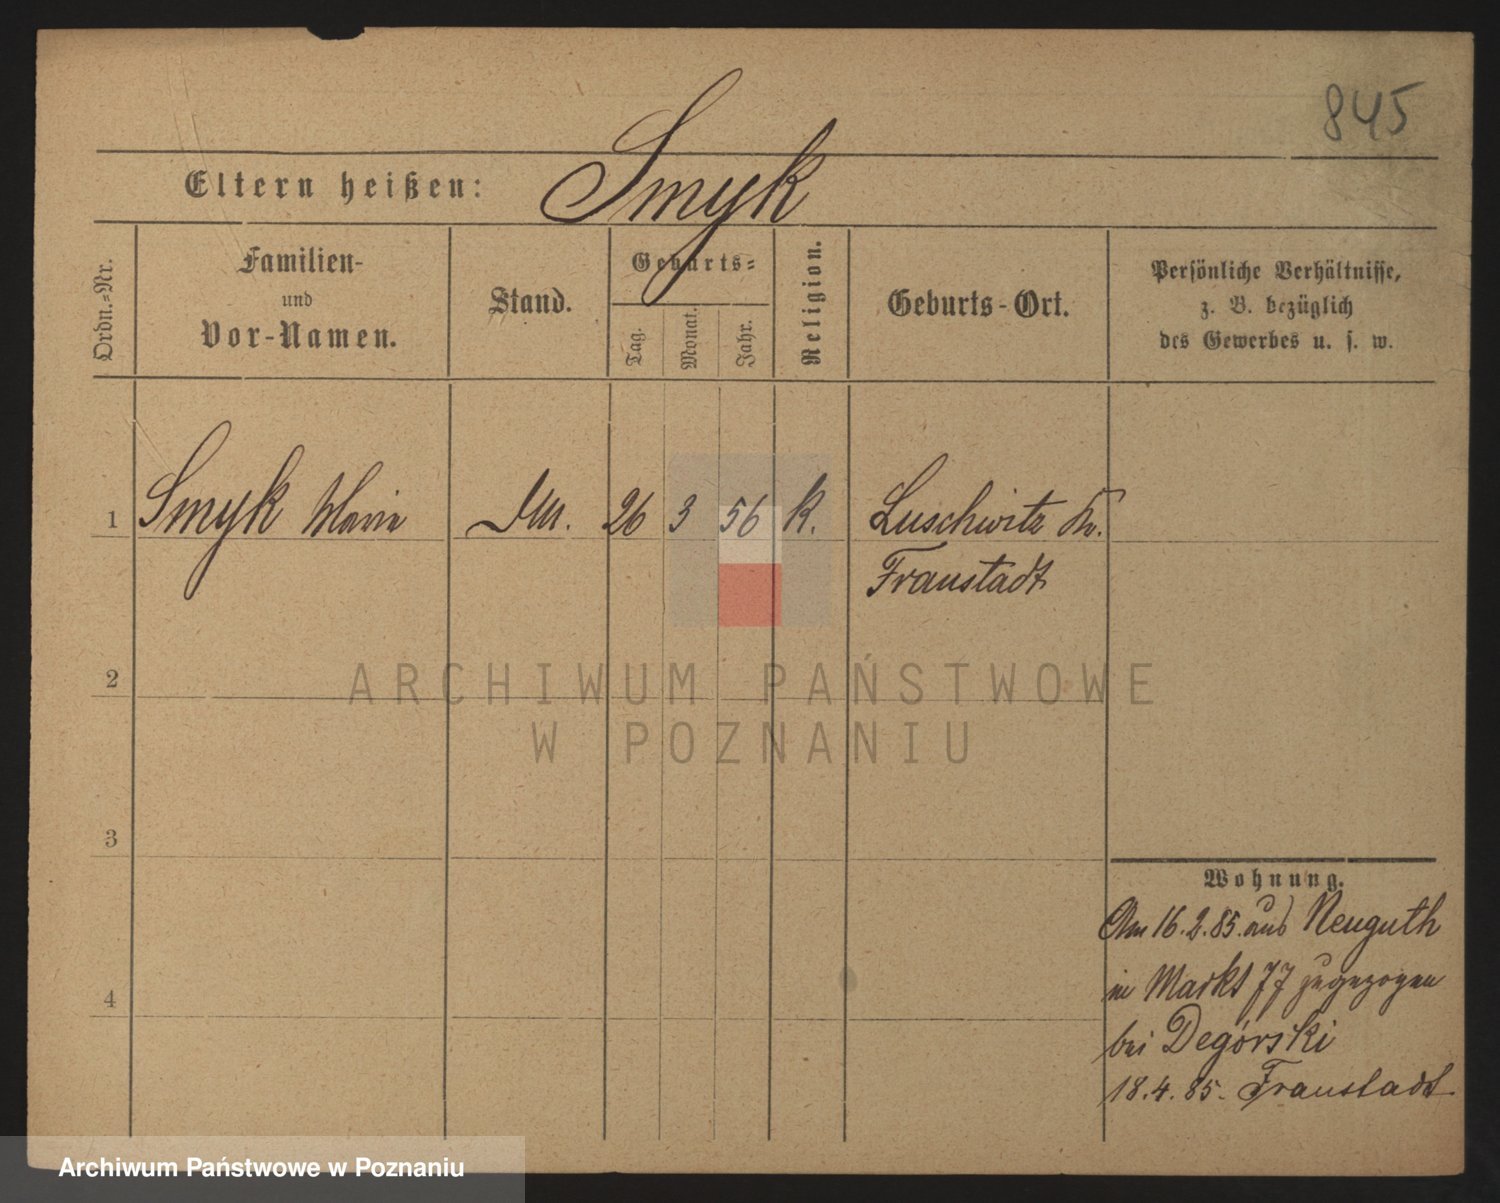 845
Eltern heißen: Smyk
Ordn.-Nr.
Familien-
und
Vor-Namen.
Stand.
Geburts-
Tag.
Monat.
Jahr.
Religion.
Geburts-Ort.
Persönliche Verhältnisse,
z. B. bezüglich
des Gewerbes u. s. w.
1 Smyk Marie 26 3 56 k. Luschwitz Kr.
Fraustadt
2
3
4
Wohnung.
Am 16.2.85. aus Neuguth
in Markt 77 zugezogen
bei Degórski
18.4.85. Fraustadt
ARCHIWUM PAŃSTWOWE
W POZNANIU
Archiwum Państwowe w Poznaniu